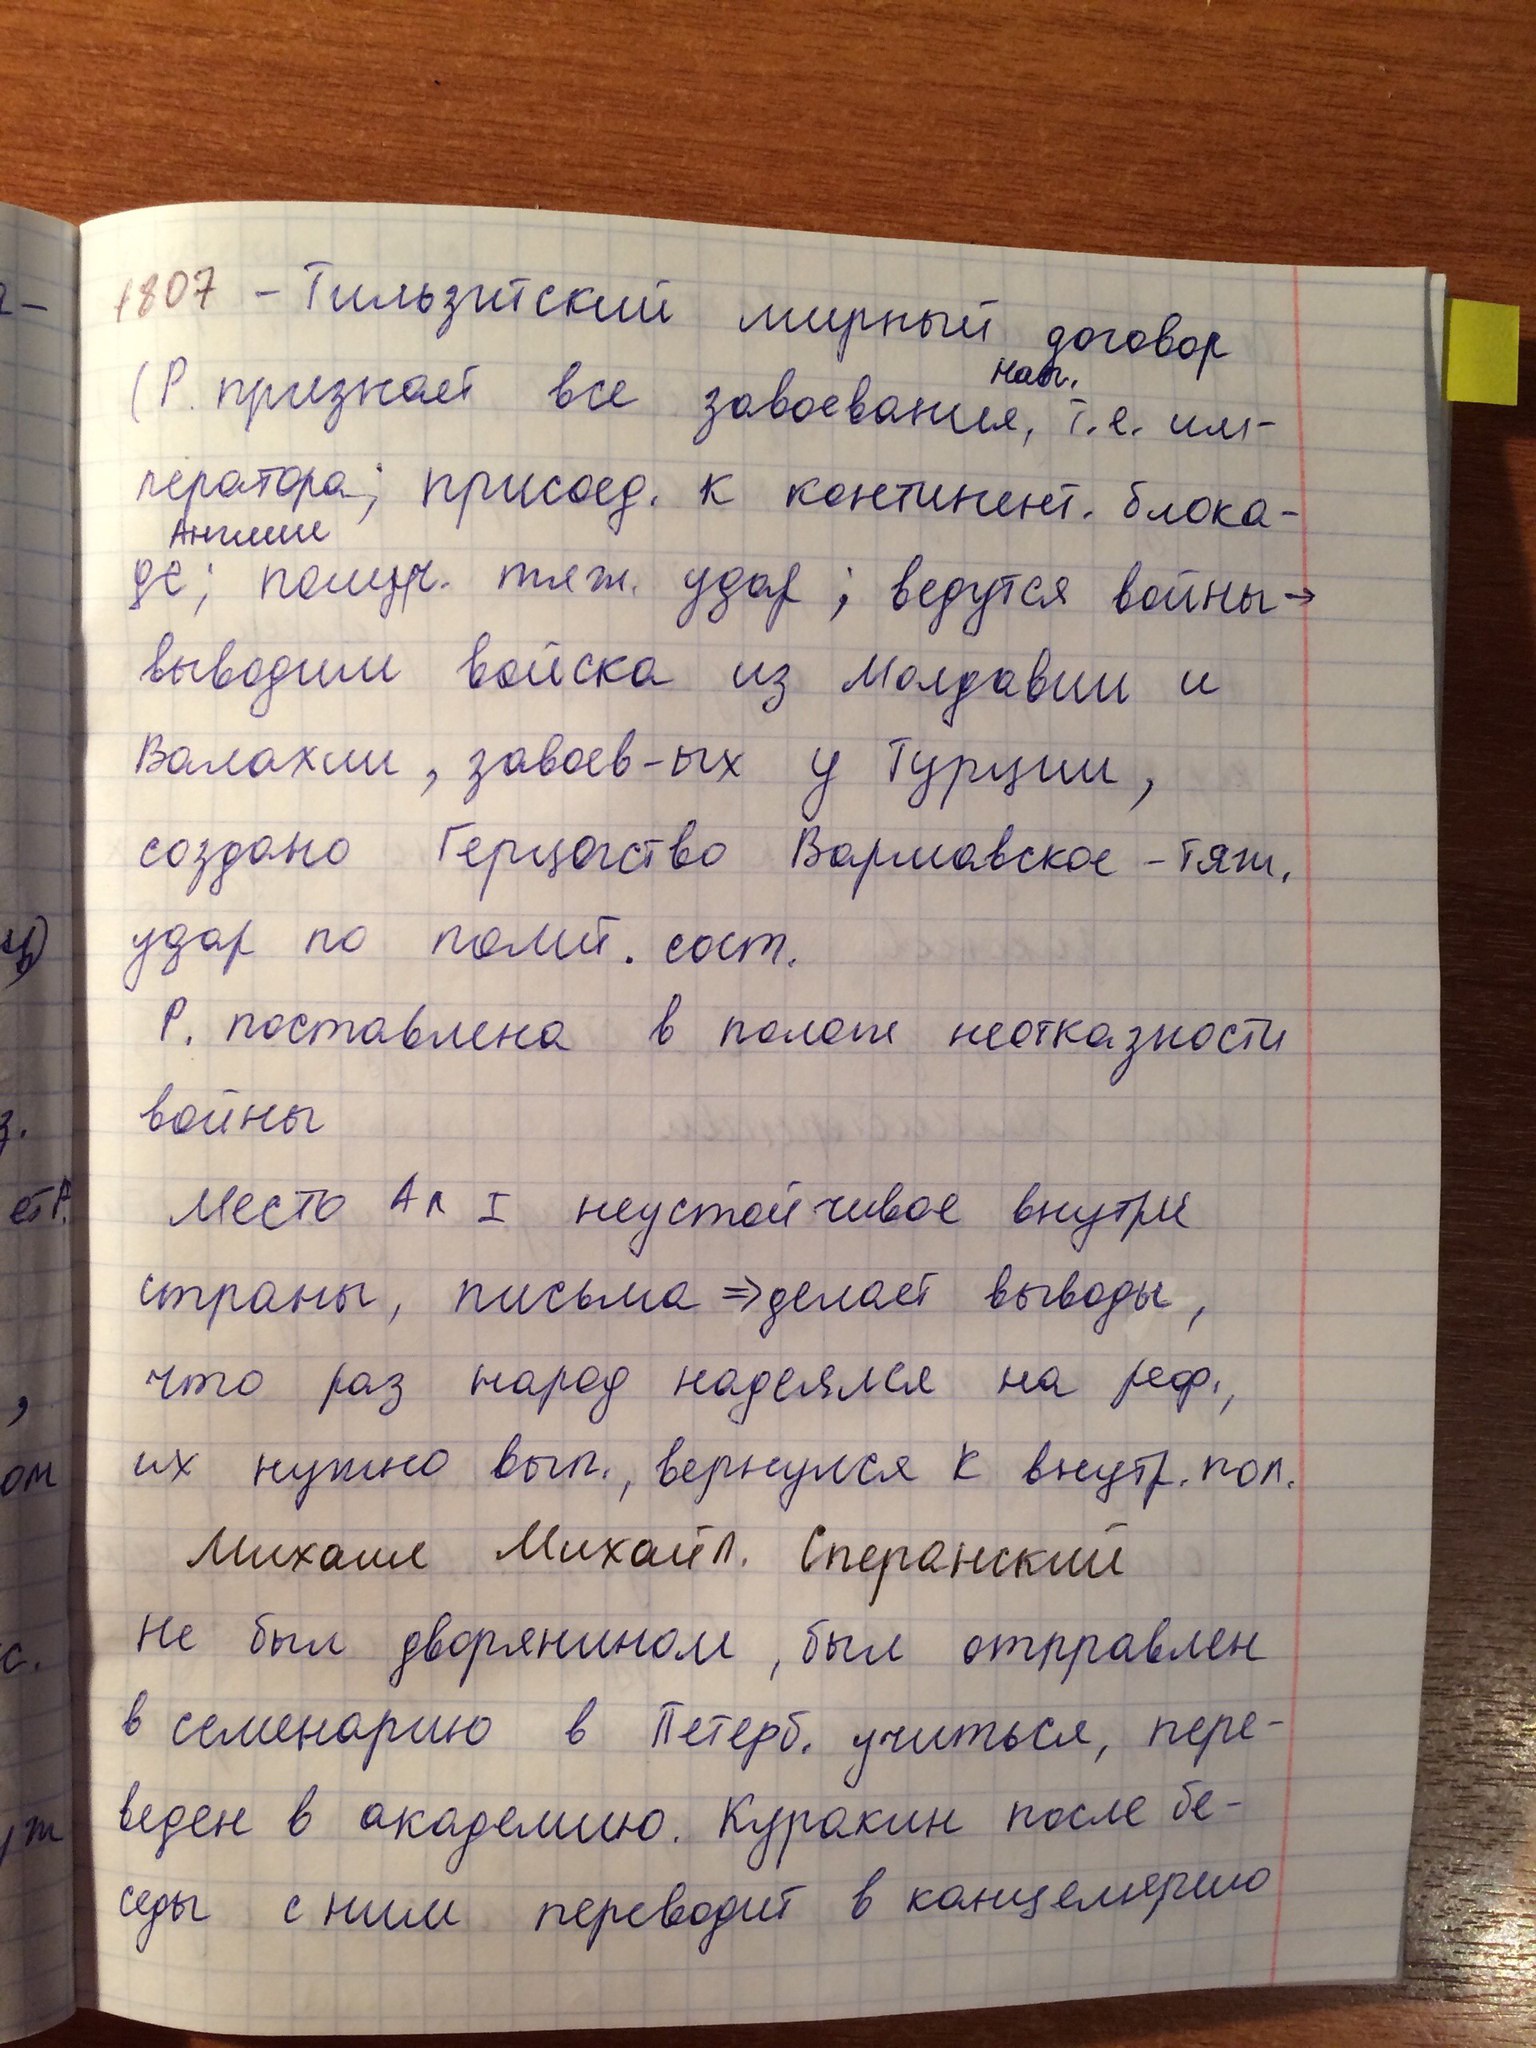 1807 - Тильзитский мирный договор
(Р. признает все завоевания, Нап. т.е. им-
ператора; присоед. к континент. блока-
де Англии; получ. тяж. удар; ведутся войны →
выводим войска из Молдавии и
Валахии, завоев-ых у Турции,
создано Герцогство Варшавское - тяж.
удар по полит. сост.
Р. поставлена в полож неотказности
войны
Место Ал I неустойчивое внутри
страны, письма => делает выводы,
что раз народ надеялся на реф.,
их нужно вып., вернулся к внутр. пол.
Михаил Михайл. Сперанский
Не был дворянином, был отправлен
в семенарию в Петерб. учиться, пере-
веден в академию. Куракин после бе-
седы с ним переводит в канцелярию